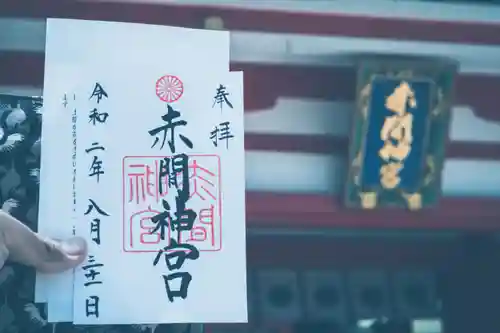 奉拝
赤間神宮
令和二年八月三十一日
赤間神宮
赤間神宮